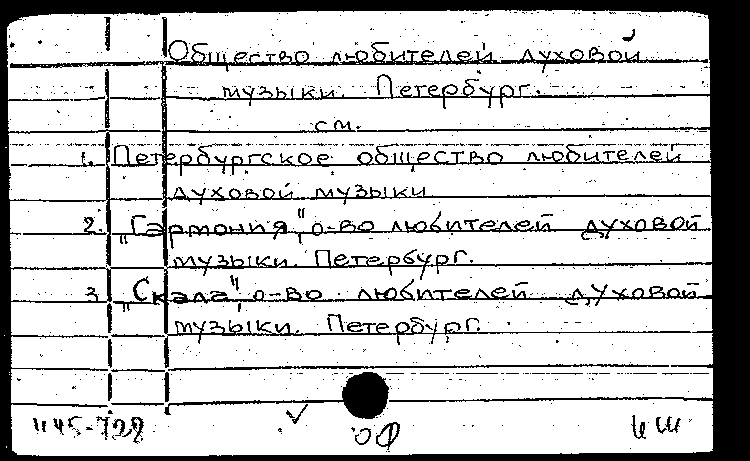 Общество любителей духовой
музыки. Петербург.
см.
1. Петербургское общество любителей
духовой музыки
2. „Гармония", о-во любителей духовой
музыки. Петербург.
3. „Скала", о-во любителей духовой
музыки. Петербург.